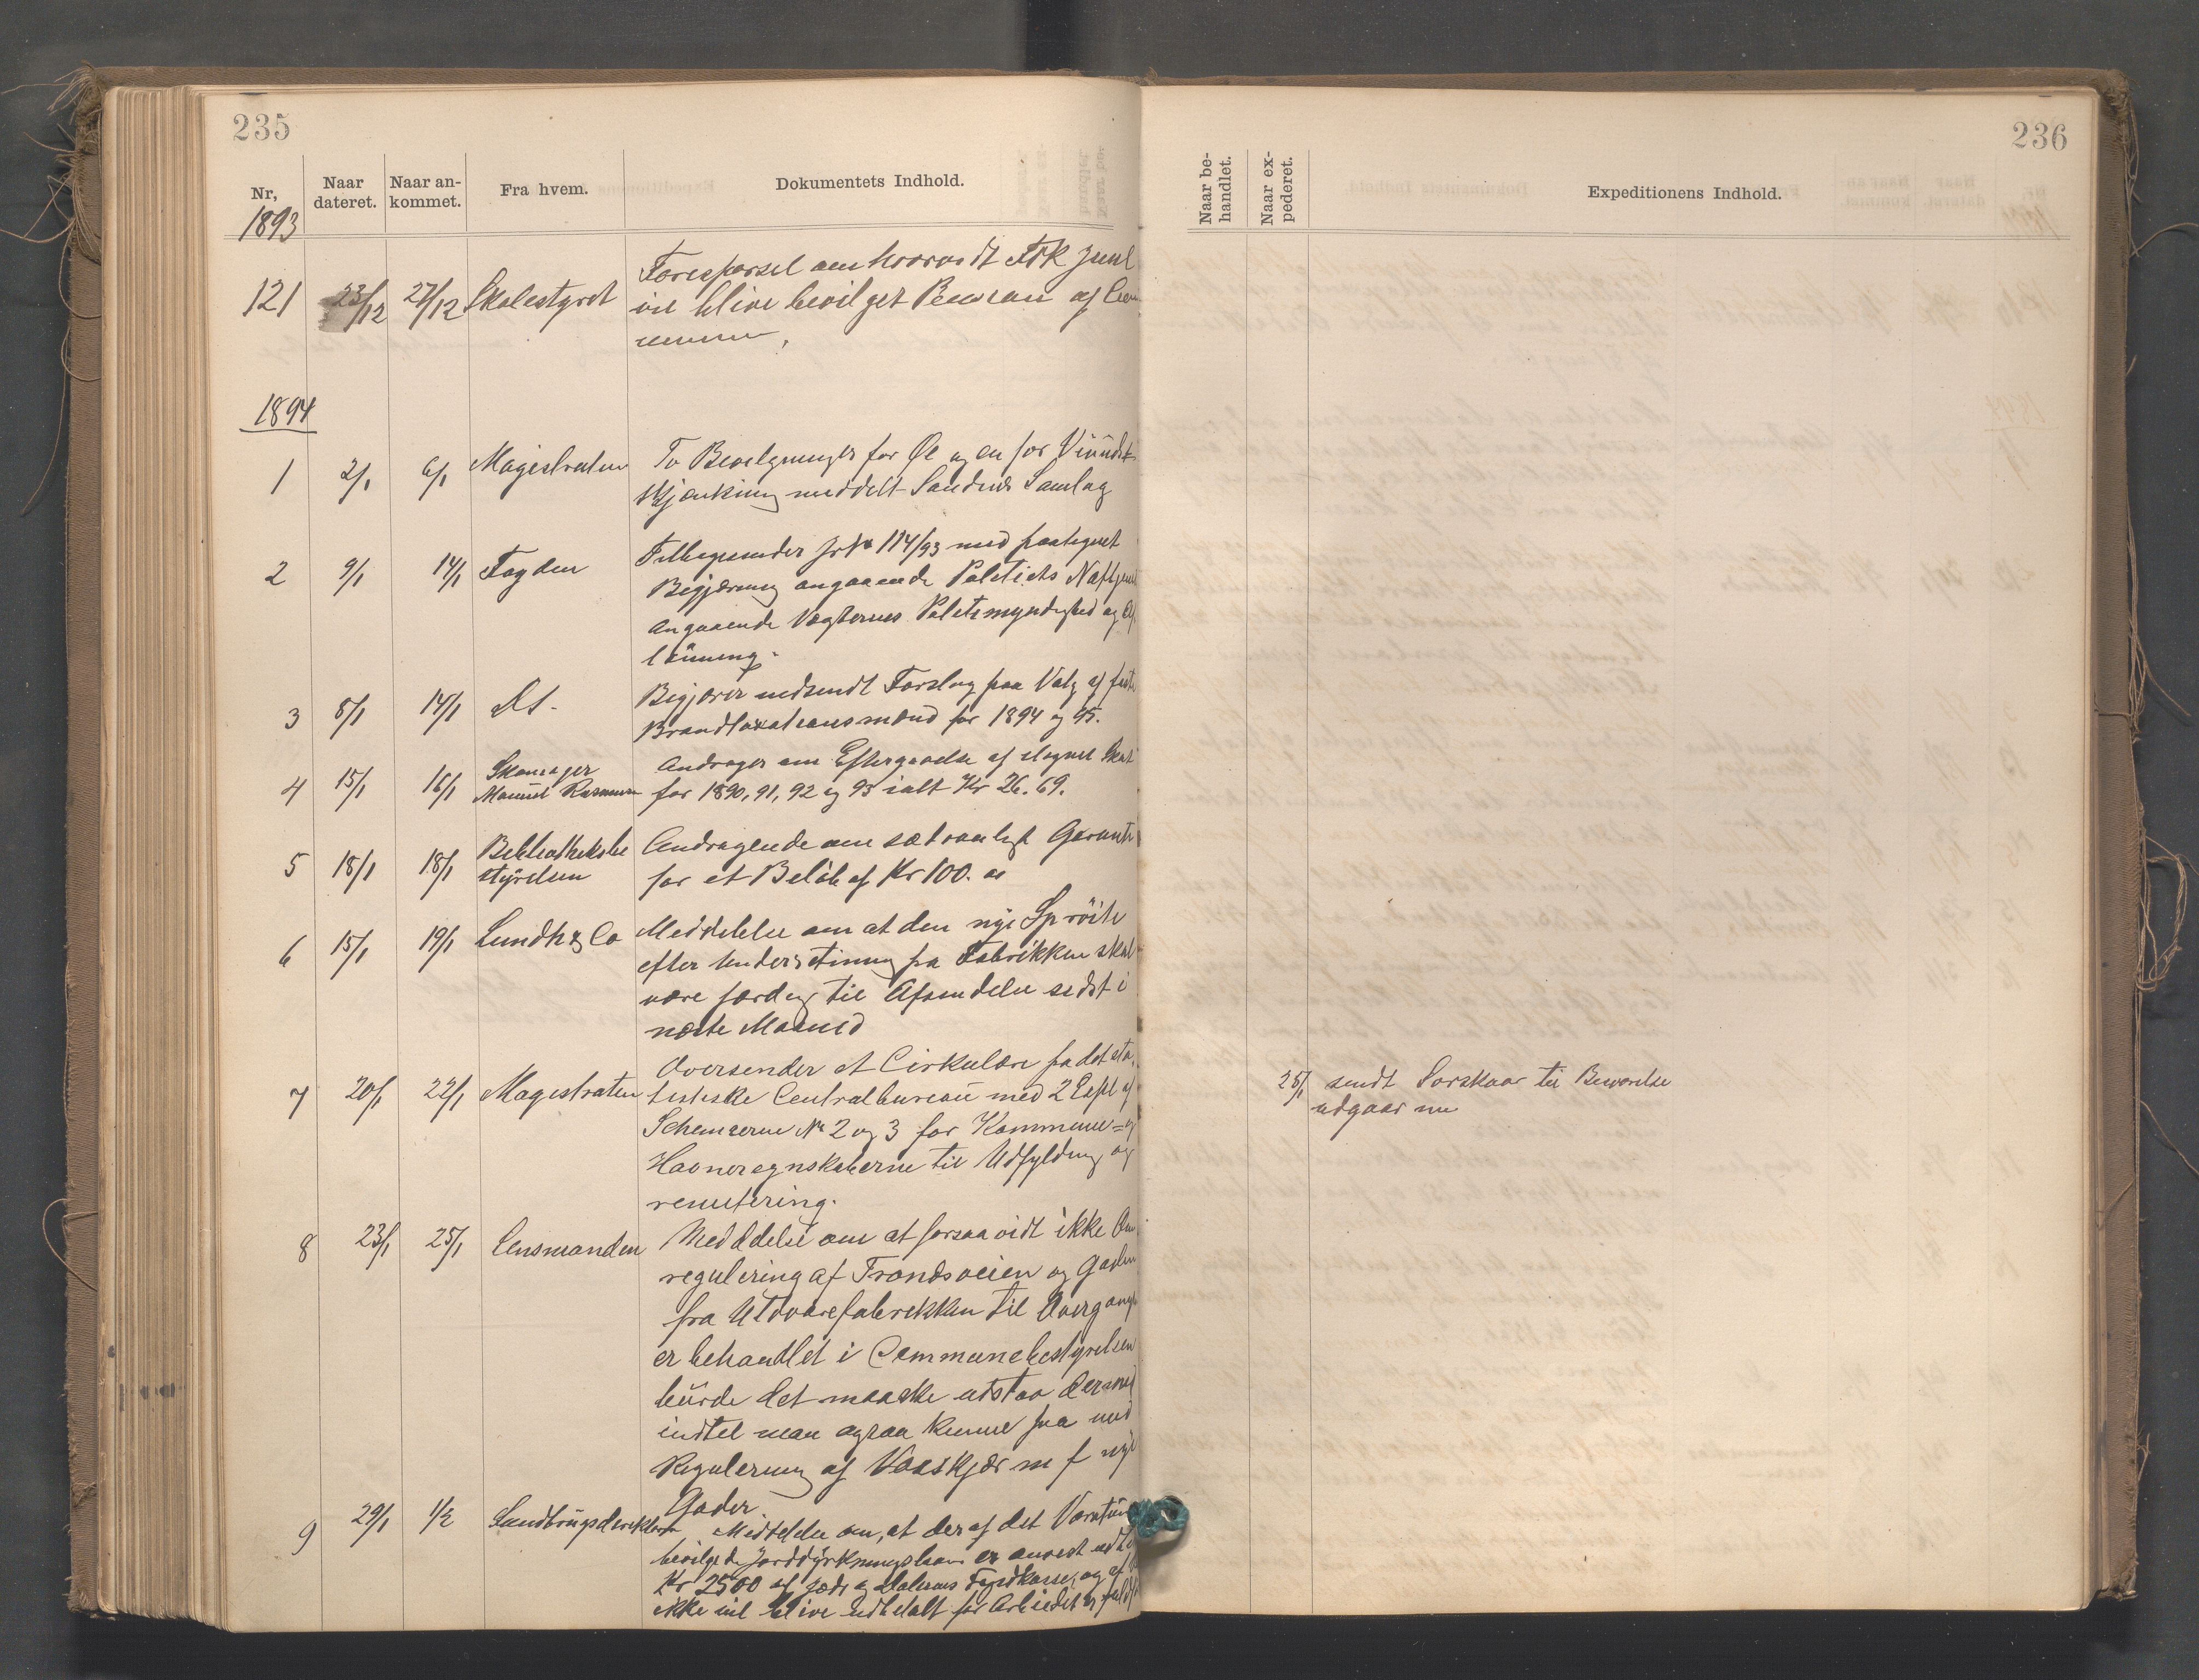 235
Nr, Naar dateret. Naar ankommet. Fra hvem. Dokumentets Indhold.
1893
121 23/12 27/12 Skolestyret Forespørsel om hvorvidt Frk Juul
vil blive bevilget Pension af Com
munen,
1894
1 2/1 6/1 Magistraten To Bevilgninger for Øl og en for Viinudsk
skjænkning meddelt Sandnes Samlag
2 9/1 14/1 Fogden Tilbagesender Jr No 114/93 med paategnet
Begjæring angaaende Politiets
Angaaende Vægternes Politimyndighed og Af
lønning.
3 8/1 14/1 Dt. Begjærer indsendt Forslag paa Valg af faste
Brandtaxationsmænd for 1894 og 95.
4 15/1 16/1 Skomager
Rasmussen Andrager om Eftergivelse af Skat
for 1890, 91, 92 og 93 ialt Kr 26.69.
5 18/1 18/1 Bibliotheksbe
styrelsen Andragende om sædvanligt Garanti
for et Beløb af Kr 100.
6 15/1 19/1 Lundh & Co Meddelelse om at den nye Sprøite
efter Underretning fra Fabrikken skal
være færdig til Afsendelse sidst i
næste Maaned
7 20/1 22/1 Magistraten Oversender et Cirkulære fra det sta
tistiske Centralbureau med 2 Expl af
Schemaerne No 2 og 3 for Kommune= og
Havneregnskaberne til Udfyldning og
remitering.
8 23/1 25/1 Lensmanden Meddelelse om at forsaavidt ikke Om
regulering af Trondsveien og Gaden
fra Uldvarefabrikken til Overgangs
er behandlet i Communebestyrelsen
burde det maaske udstaa dermed
indtil man ogsaa kunne faa med
Regulering af Vaaskjær m fl nye
Gader.
9 29/1 1/2 Landbrugsdirektøren Meddelelse om, at der af det
bevilgede Jorddyrkningslaan er anvist udbe
Kr 2500 af Jæder og Dalernes Fogdkasse, og at
ikke vil blive udbetalt før Arbeidet er fuldf
236
Naar behandlet. Naar expederet. Expeditionens Indhold.
25/1 sendt Sorskaar til Besvarelse
udgaar nu